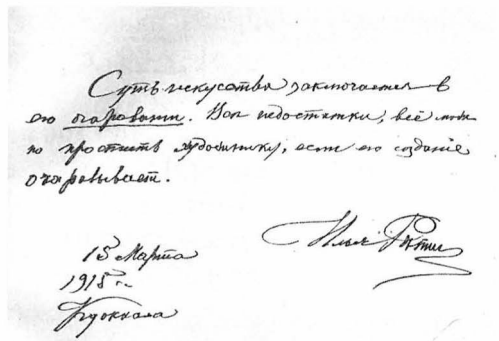 Суть искусства заключается в
его очаровании. Все недостатки, всё можно
но простить художнику, если его созданіе
очаровывает.
Илья Репин
15 Марта
1915 г.
Куоккала